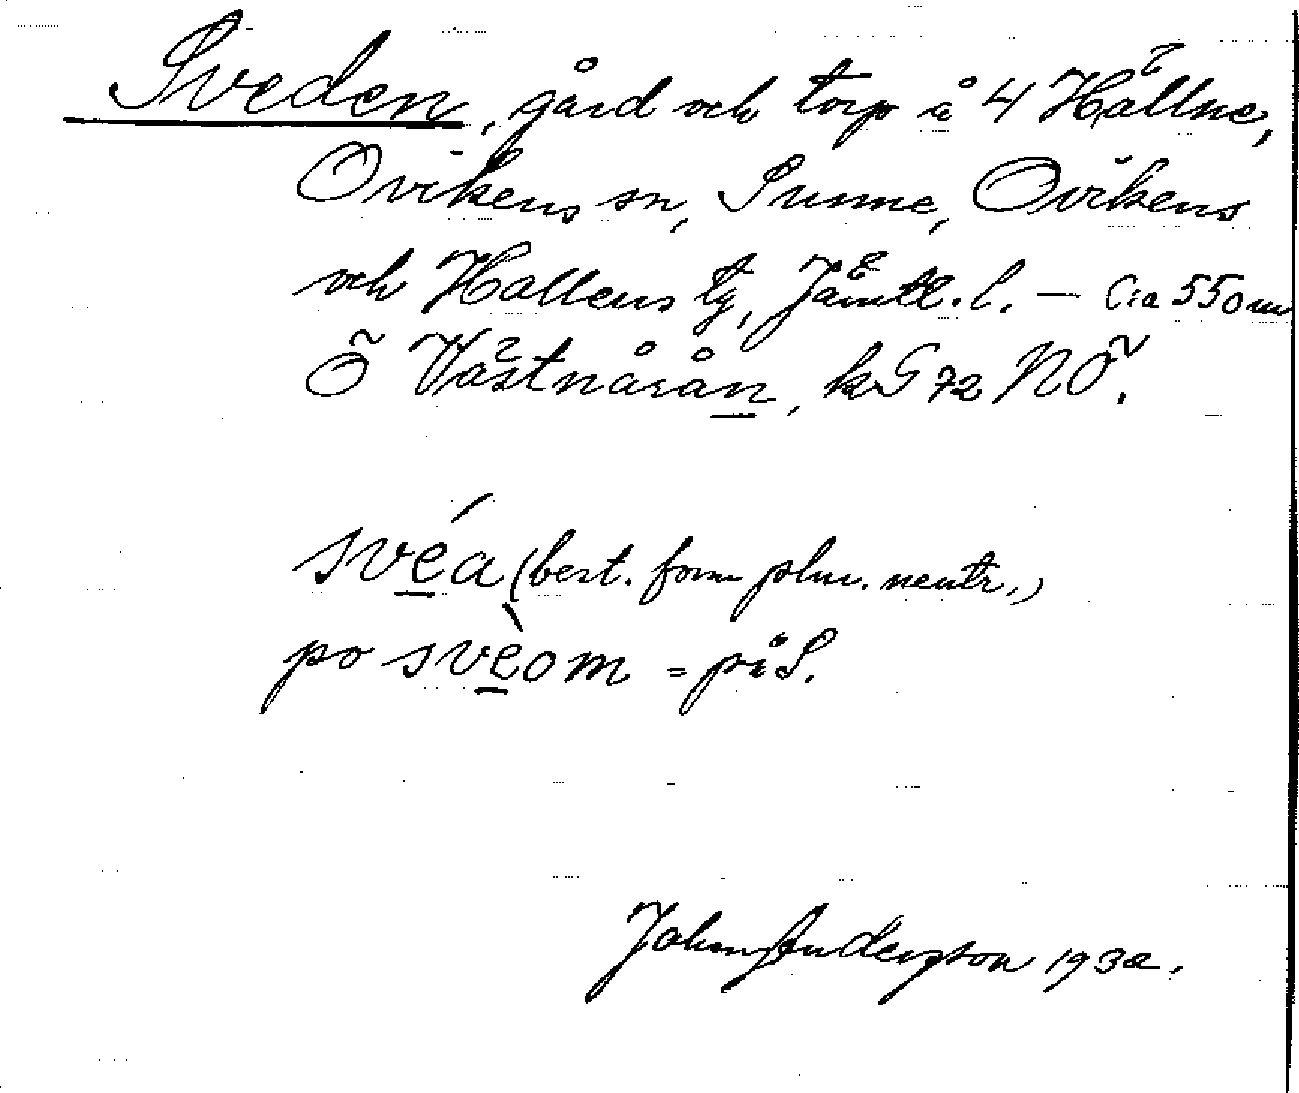 Sveden, gård och torp å 4 Hällne,
Ovikens sn, Sunne, Ovikens
och Hallens tg, Jämtl. l. — C:a 550 m
Ö Västnårån, kG 72 NÖ.
svéa (best. form plur. neutr.,)
po svèom = på S.
John Anderzson 1932.